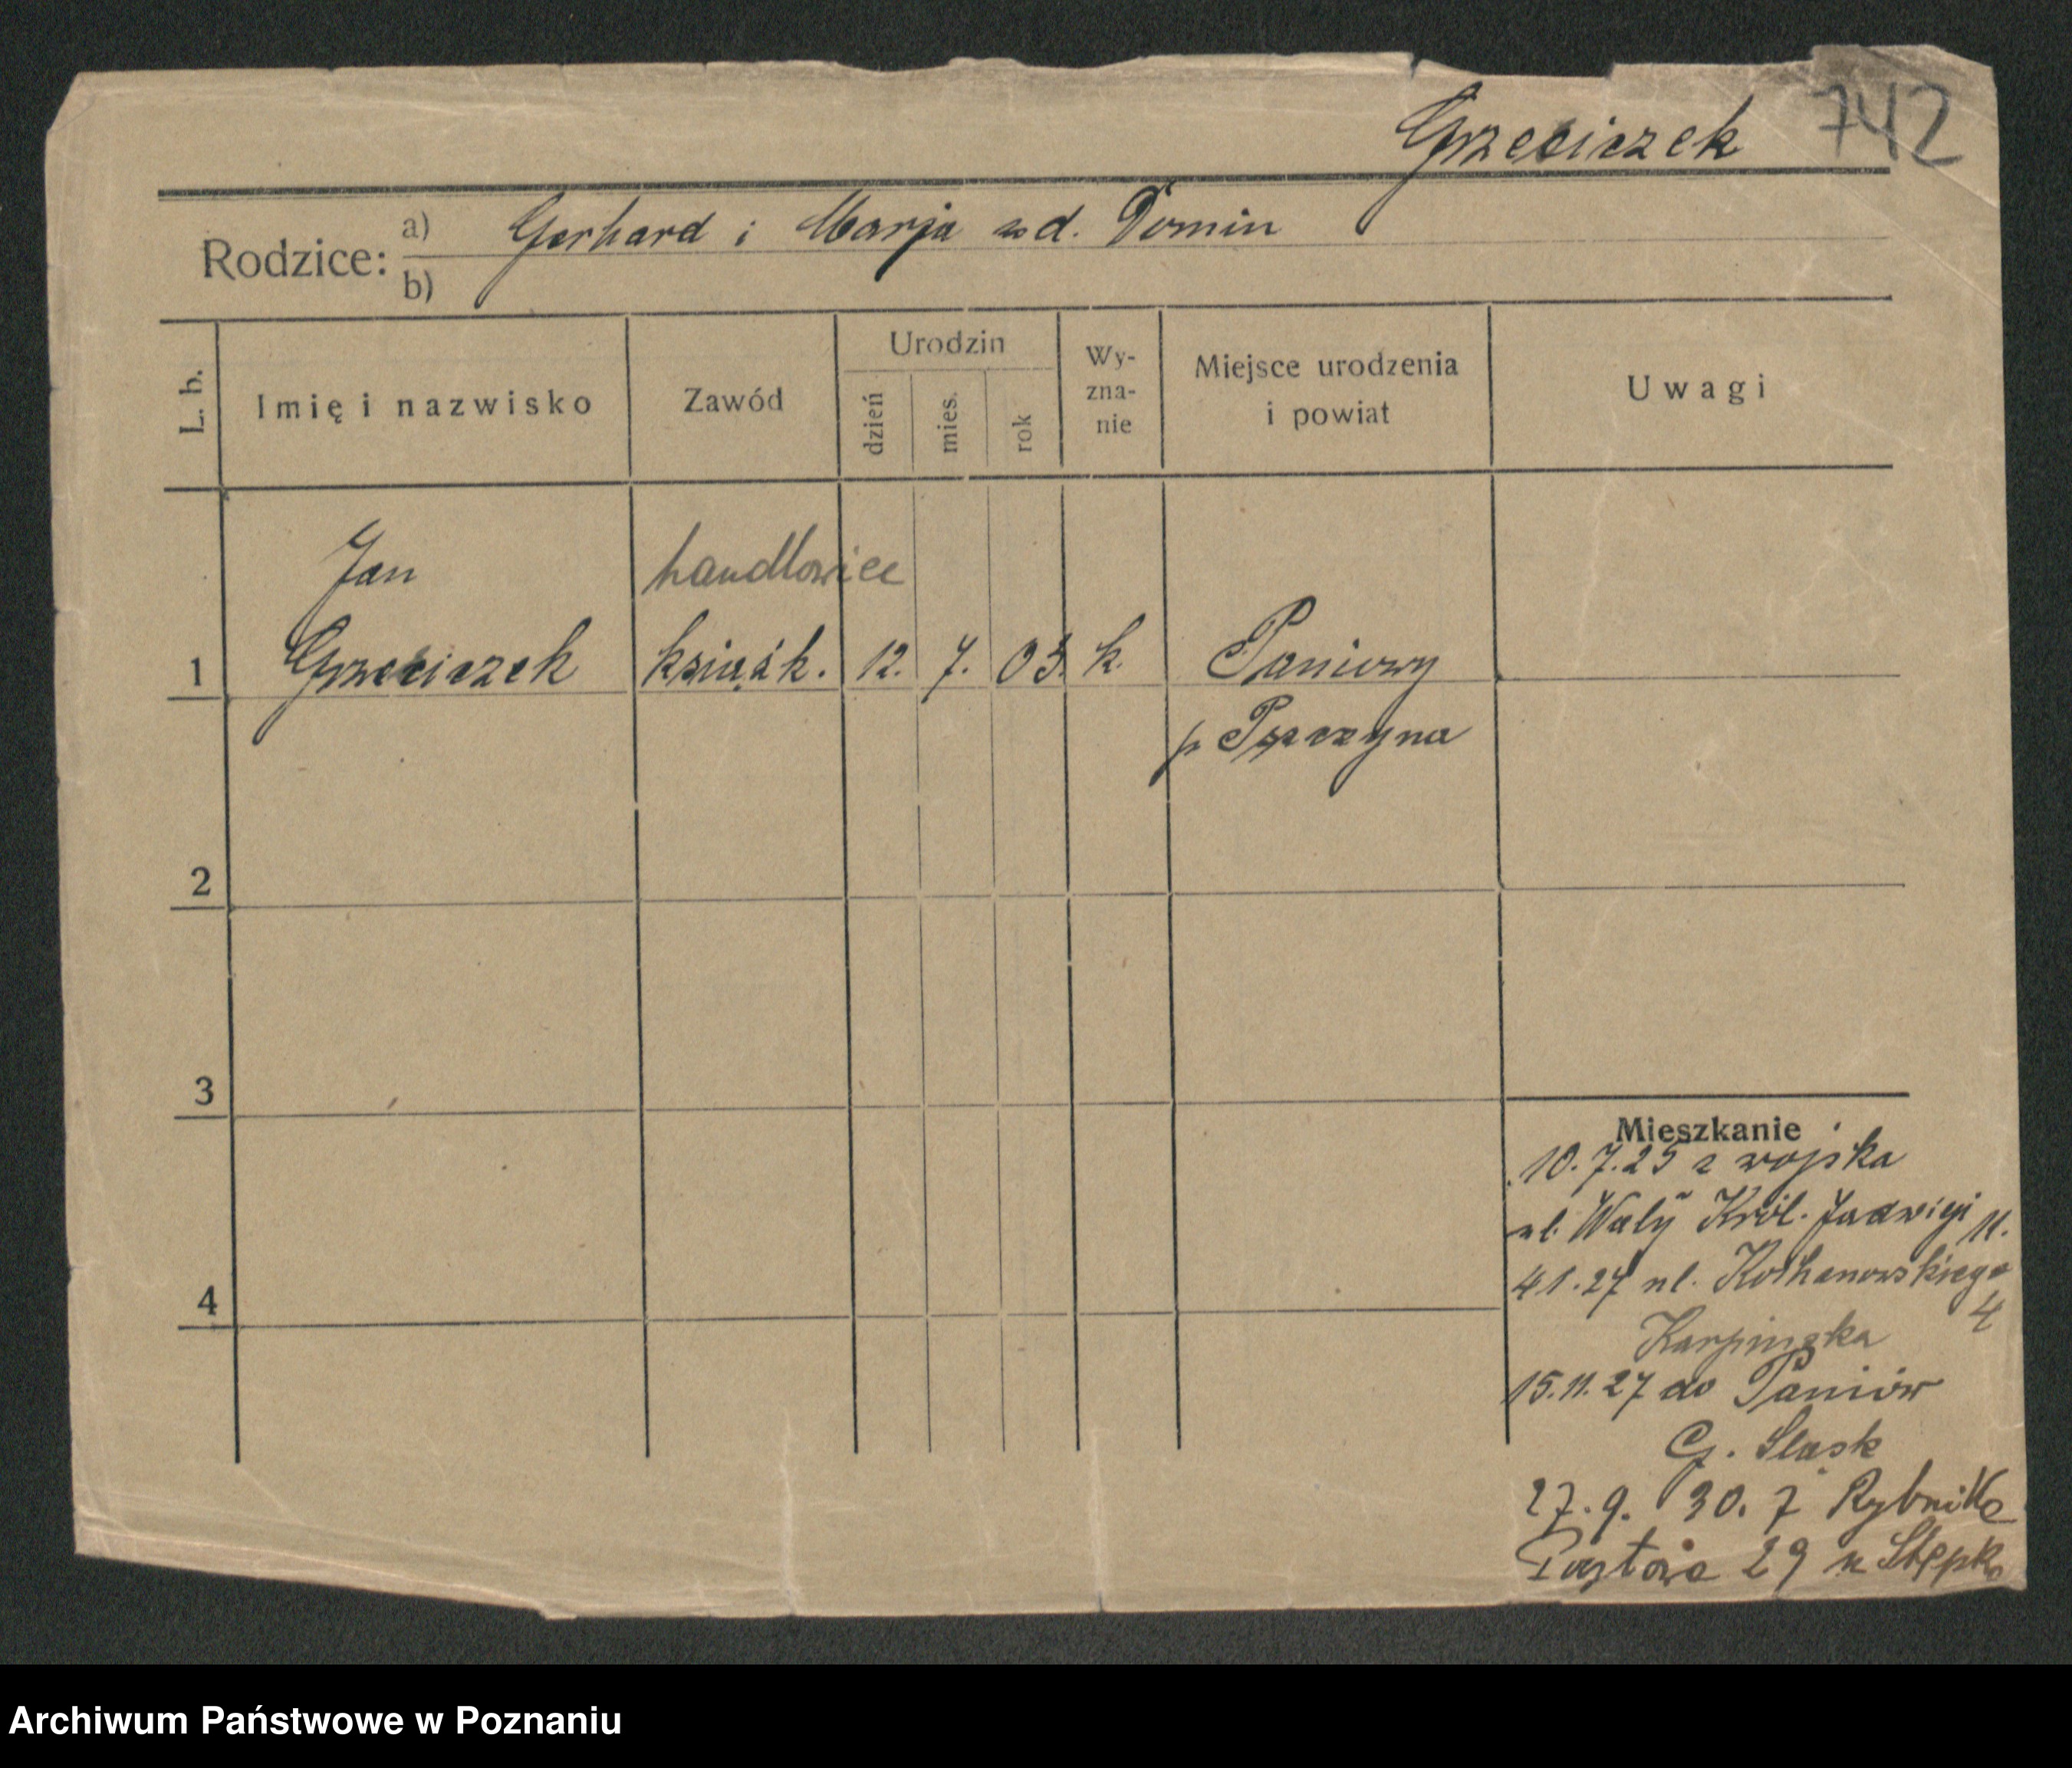 Grzesiczek 742
Rodzice: a) Gerhard i Marja zd. Domin
b)
L. b.
Imię i nazwisko
Zawód
Urodzin
dzień
mies.
rok
Wy-
zna-
nie
Miejsce urodzenia
i powiat
Uwagi
Jan handlowiec
1 Grzesiczek książk. 12. 7. 03. k. Paniowy
p Pszczyna
2
3
4
Mieszkanie
10.7.25 z wojska
ul. Wały Król. Jadwigi 11.
4 1.27 ul. Kochanowskiego
4
Karpinska
15.11.27 do Paniów
G. Śląsk
27.9. 30. z Rybnika
29 u
Archiwum Państwowe w Poznaniu